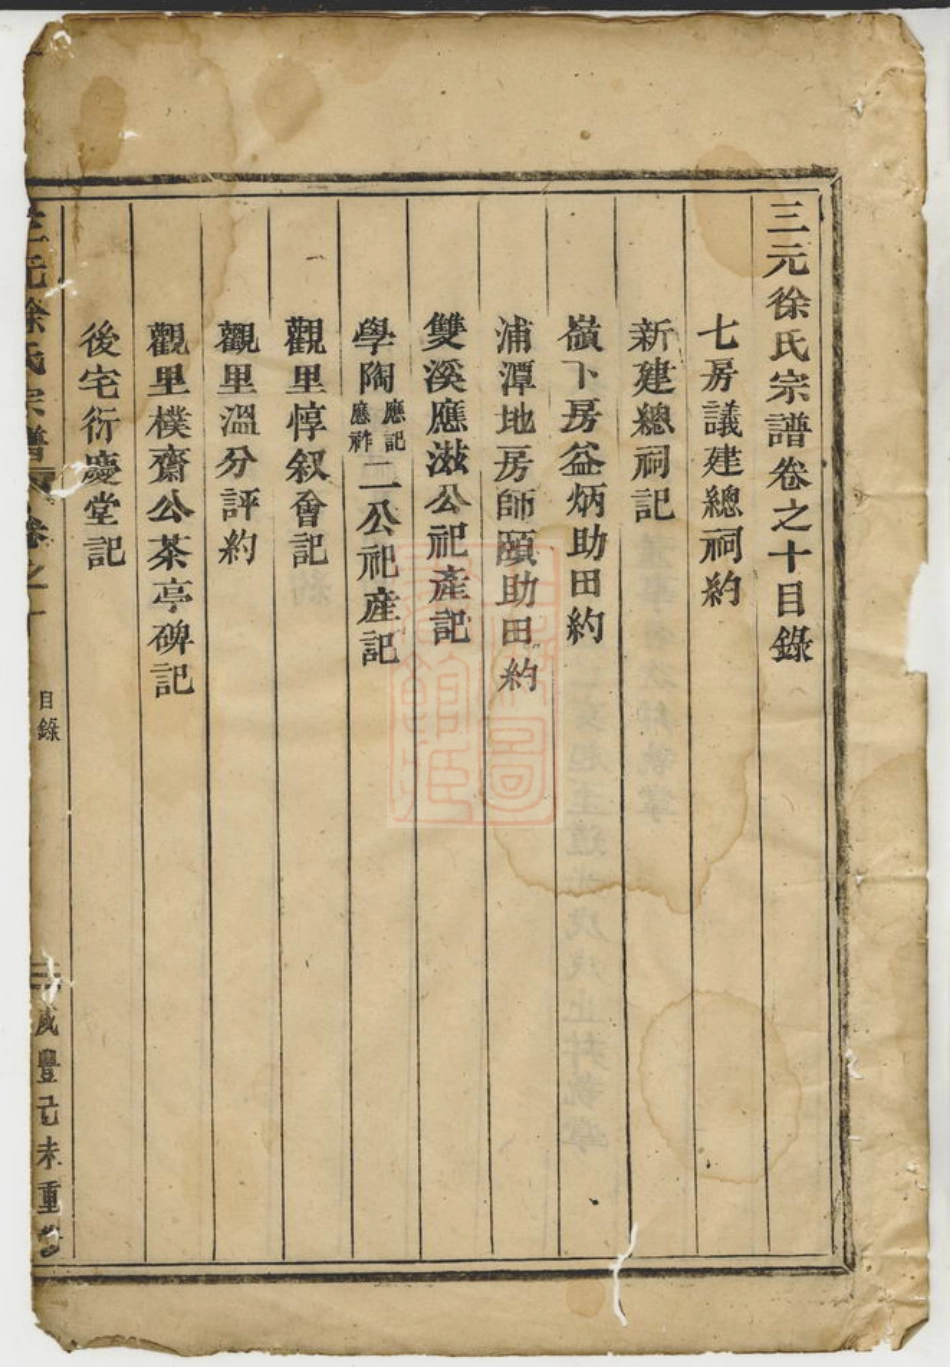 三元徐氏宗譜卷之十目錄
七房議建總祠約
新建總祠記
嶺下房益炳助田約
浦潭地房師頤助田約
雙溪應滋公祀產記
學陶應記應祚二公祀產記
觀里惇叙會記
觀里溫分評約
觀里樸齋公茶亭碑記
後宅衍慶堂記
三元徐氏宗譜 卷之十 目錄 咸豐己未重